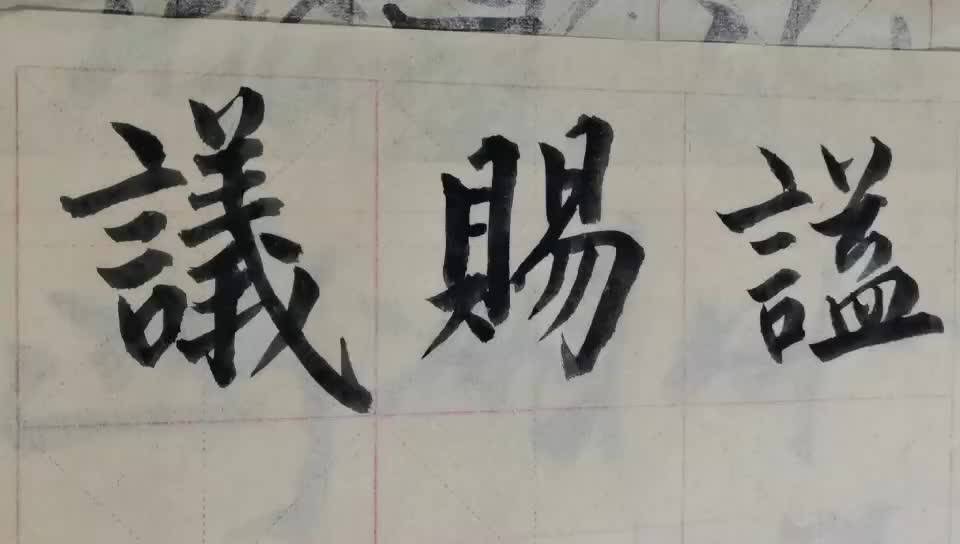 議賜謚